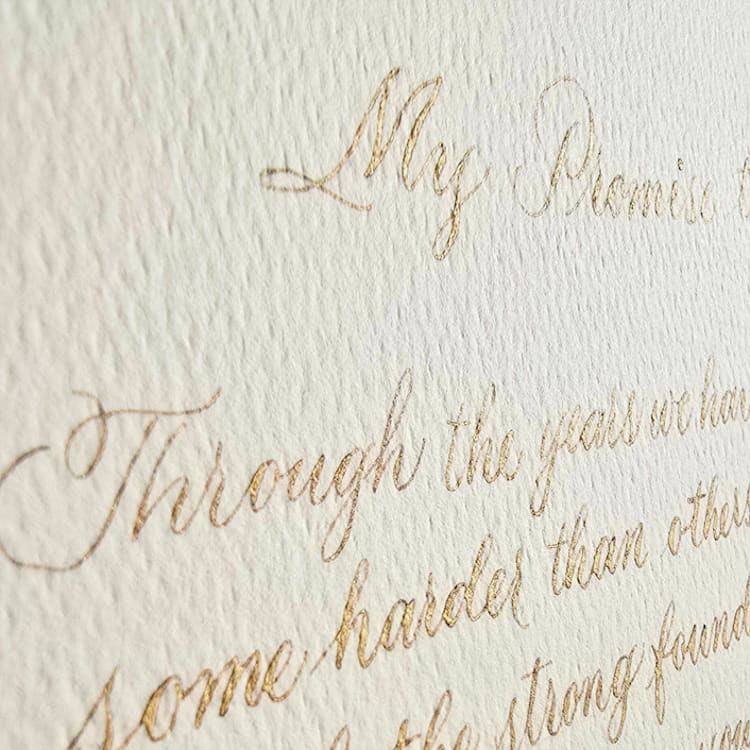 My Promise t
Through the years we hav
some harder than others
the strong found